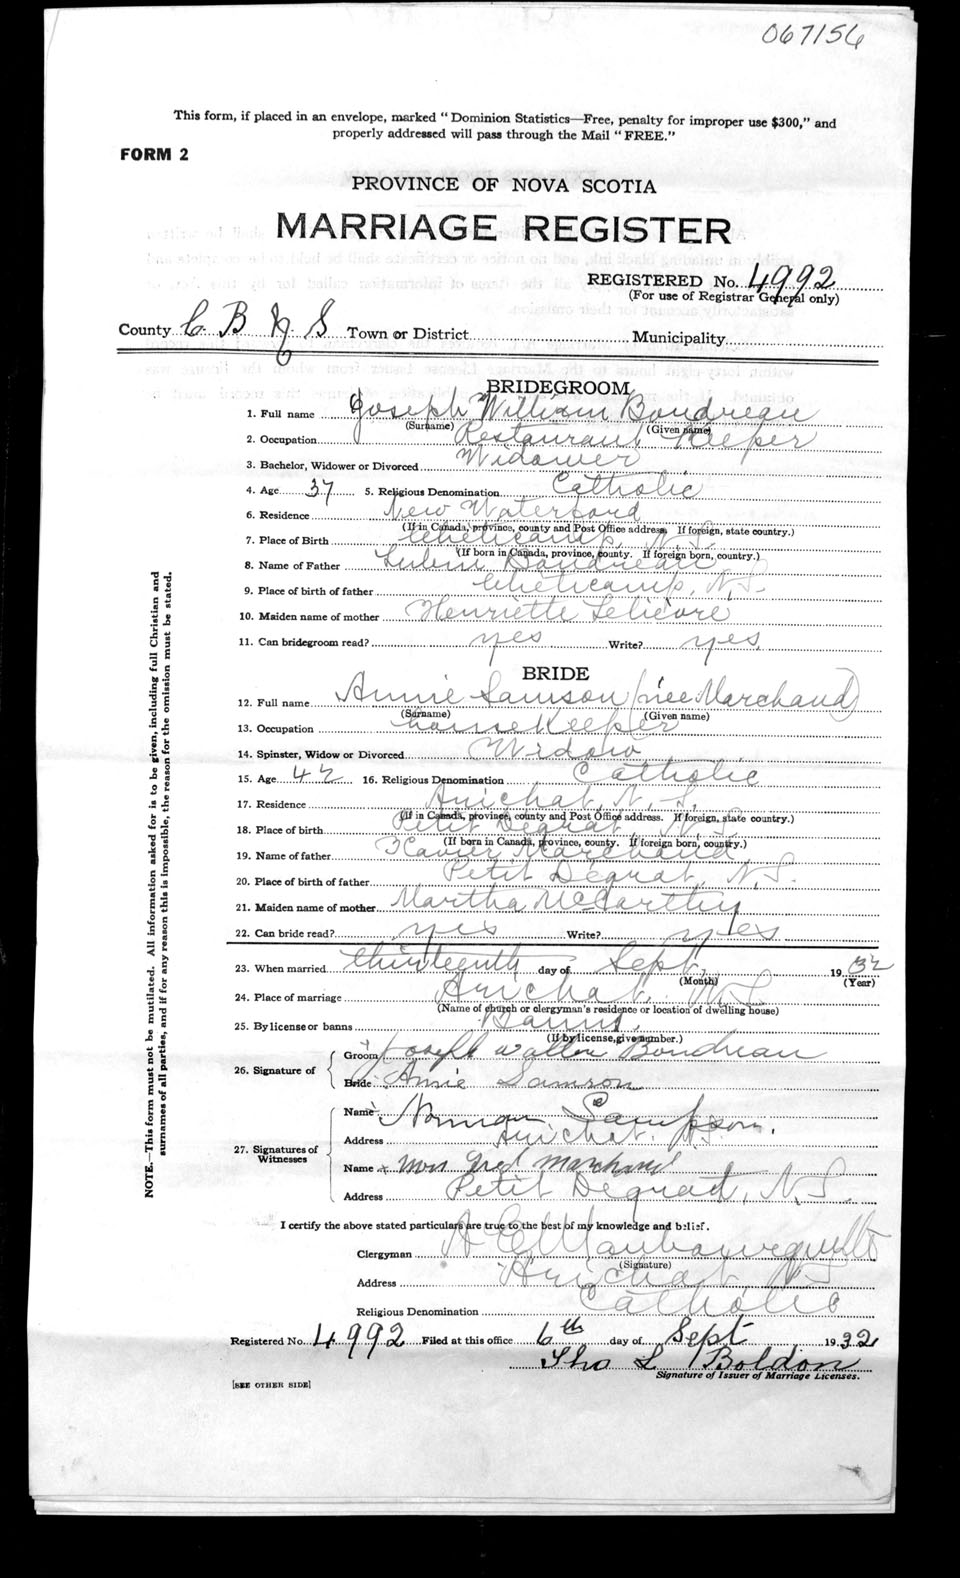 067156
This form, if placed in an envelope, marked "Dominion Statistics—Free, penalty for improper use $300," and
properly addressed will pass through the Mail "FREE."
FORM 2
PROVINCE OF NOVA SCOTIA
MARRIAGE REGISTER
REGISTERED No. 4992
(For use of Registrar General only)
County C B N S Town or District Municipality
BRIDEGROOM
1. Full name Joseph William Boudreau
(Surname) (Given name)
2. Occupation Restaurant Keeper
3. Bachelor, Widower or Divorced Widower
4. Age 37 5. Religious Denomination Catholic
6. Residence New Waterford
(If in Canada, province, county and Post Office address. If foreign, state country.)
7. Place of Birth Cheticamp, N.S.
(If born in Canada, province, county. If foreign born, country.)
8. Name of Father Boudreau
9. Place of birth of father Cheticamp, N.S.
10. Maiden name of mother Henriette Lelievre
11. Can bridegroom read? yes Write? yes
BRIDE
12. Full name Annie Samson (née Marchand)
(Surname) (Given name)
13. Occupation housekeeper
14. Spinster, Widow or Divorced Widow
15. Age 42 16. Religious Denomination Catholic
17. Residence Arichat, N.S.
(If in Canada, province, county and Post Office address. If foreign, state country.)
18. Place of birth Petit Degrat, N.S.
(If born in Canada, province, county. If foreign born, country.)
19. Name of father Xavier Marchand
20. Place of birth of father Petit Degrat, N.S.
21. Maiden name of mother Martha McCarthy
22. Can bride read? yes Write? yes
23. When married thirteenth day of Sept, 1932
(Month) (Year)
24. Place of marriage Arichat N.S.
(Name of church or clergyman's residence or location of dwelling house)
25. By license or banns Banns.
(If by license, give number.)
26. Signature of Groom Joseph Boudreau
Bride Annie Samson
27. Signatures of Witnesses
Name Norman Sampson.
Address Arichat. N.S.
Name x Mrs Fred Marchand
Address Petit Degrat, N.S.
I certify the above stated particulars are true to the best of my knowledge and belief.
Clergyman A
(Signature)
Address Arichat N.S.
Religious Denomination Catholic
Registered No. 4992 Filed at this office 6th day of Sept 1932
Tho L Boldon
Signature of Issuer of Marriage Licenses.
[SEE OTHER SIDE]
NOTE.—This form must not be mutilated. All information asked for is to be given, including full Christian and
surnames of all parties, and if for any reason this is impossible, the reason for the omission must be stated.